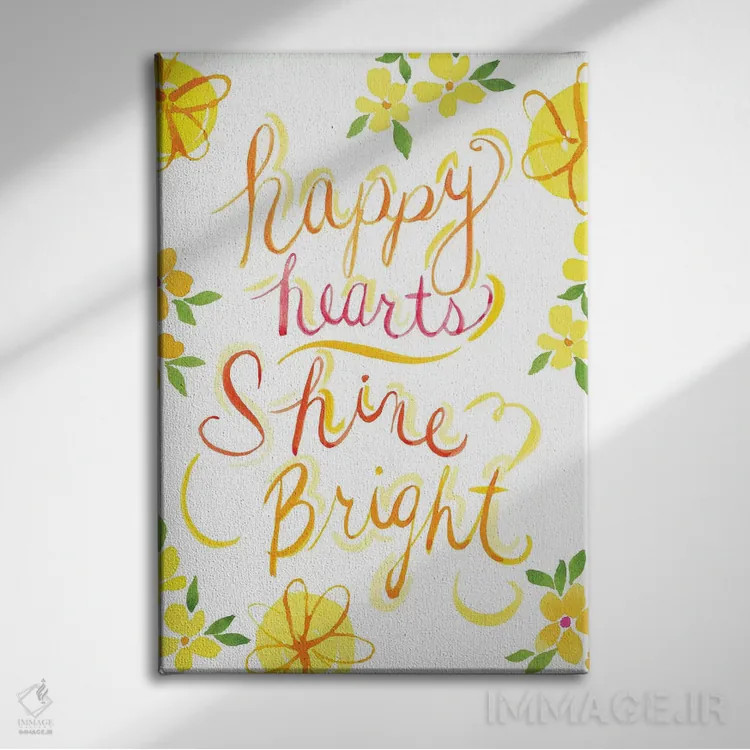 happy
hearts
Shine
Bright
IMMAGE
IMMAGE.IR
IMMAGE.IR